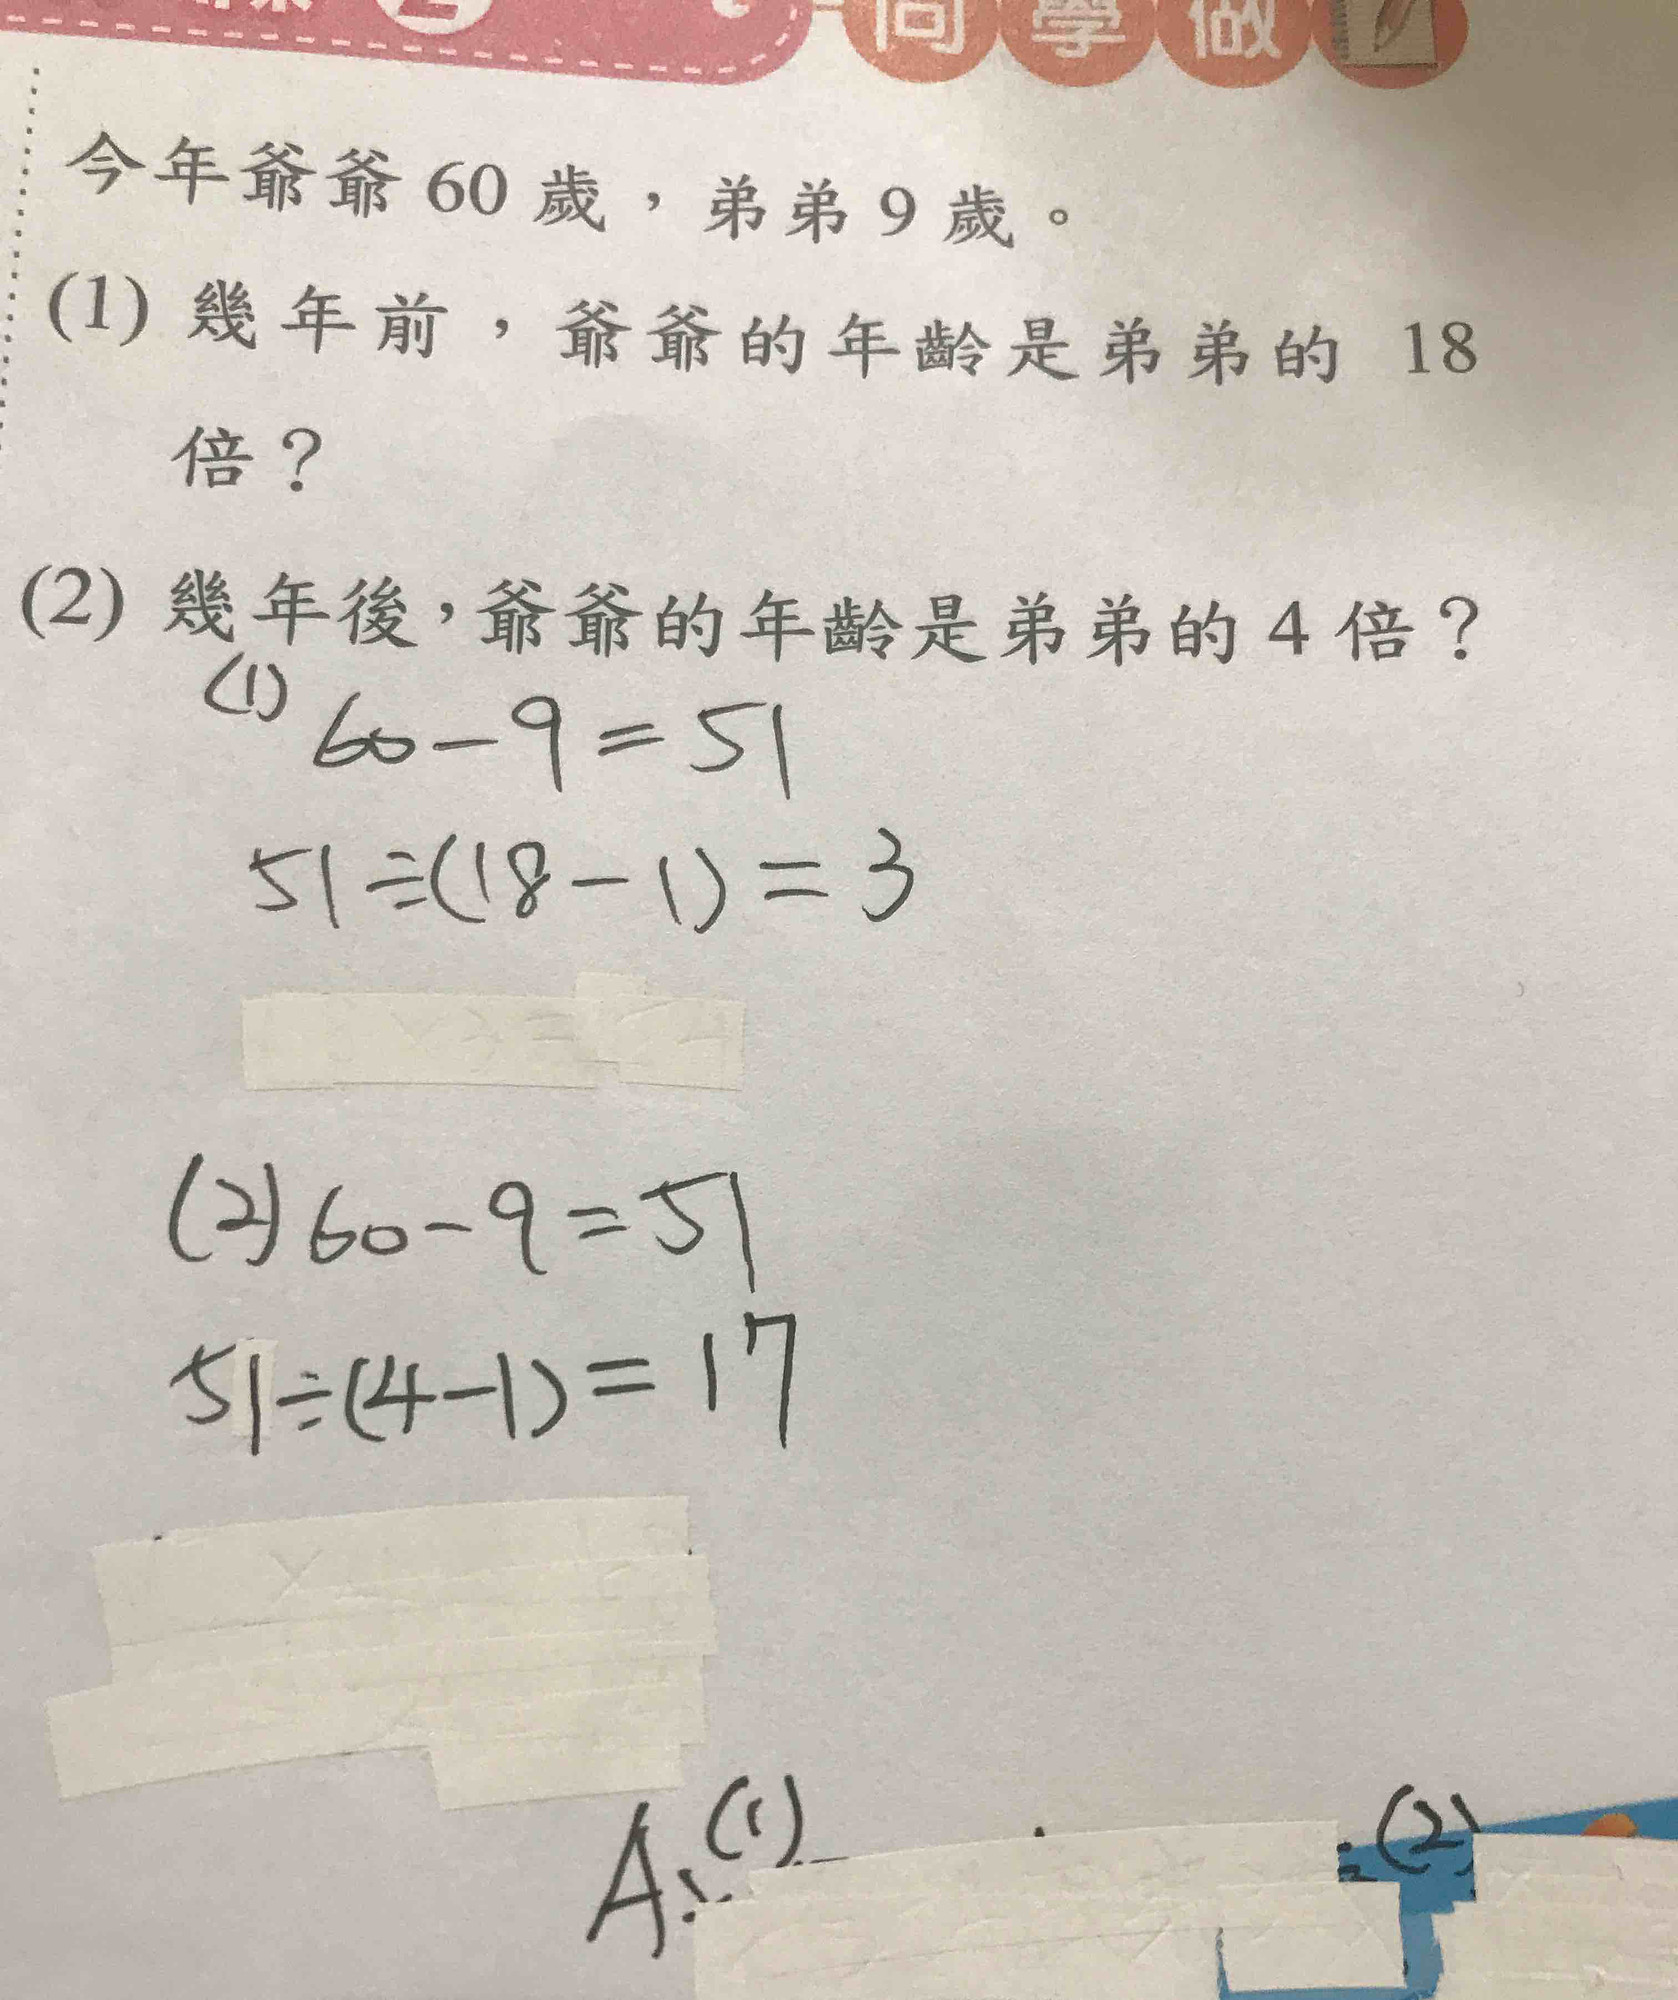 同學做
今年爺爺 60 歲，弟弟 9 歲。
(1) 幾年前，爺爺的年齡是弟弟的 18
倍？
(2) 幾年後，爺爺的年齡是弟弟的 4 倍？
(1) 60-9=51
51÷(18-1)=3
(2) 60-9=51
51÷(4-1)=17
A: (1) (2)